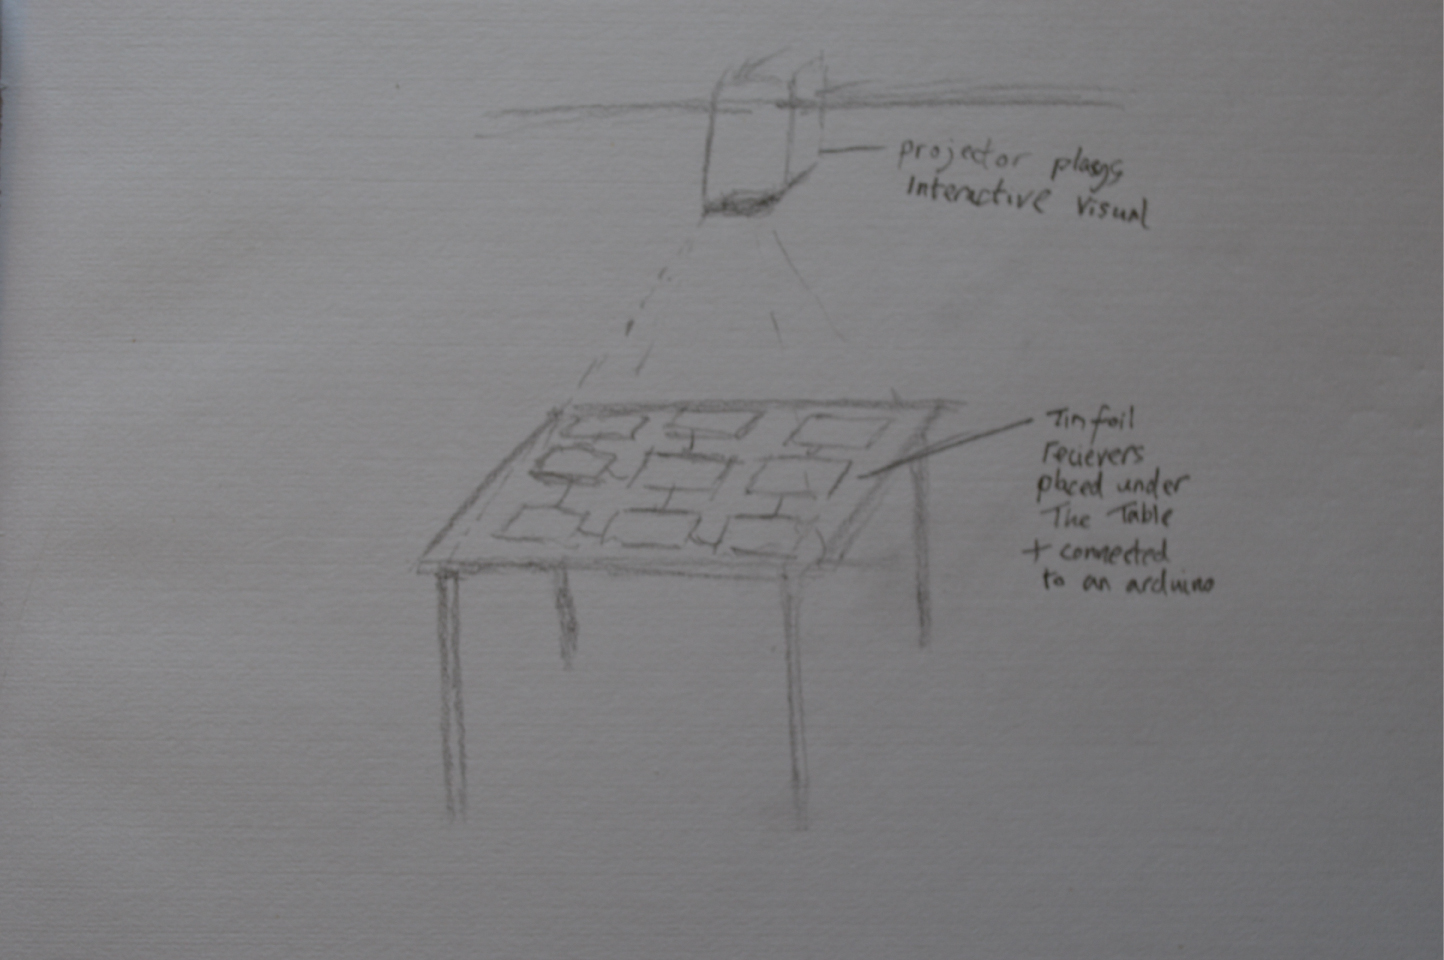 projector plasys
Interactive visual
Tin foil
recievers
placed under
The Table
+ connected
to an arduino